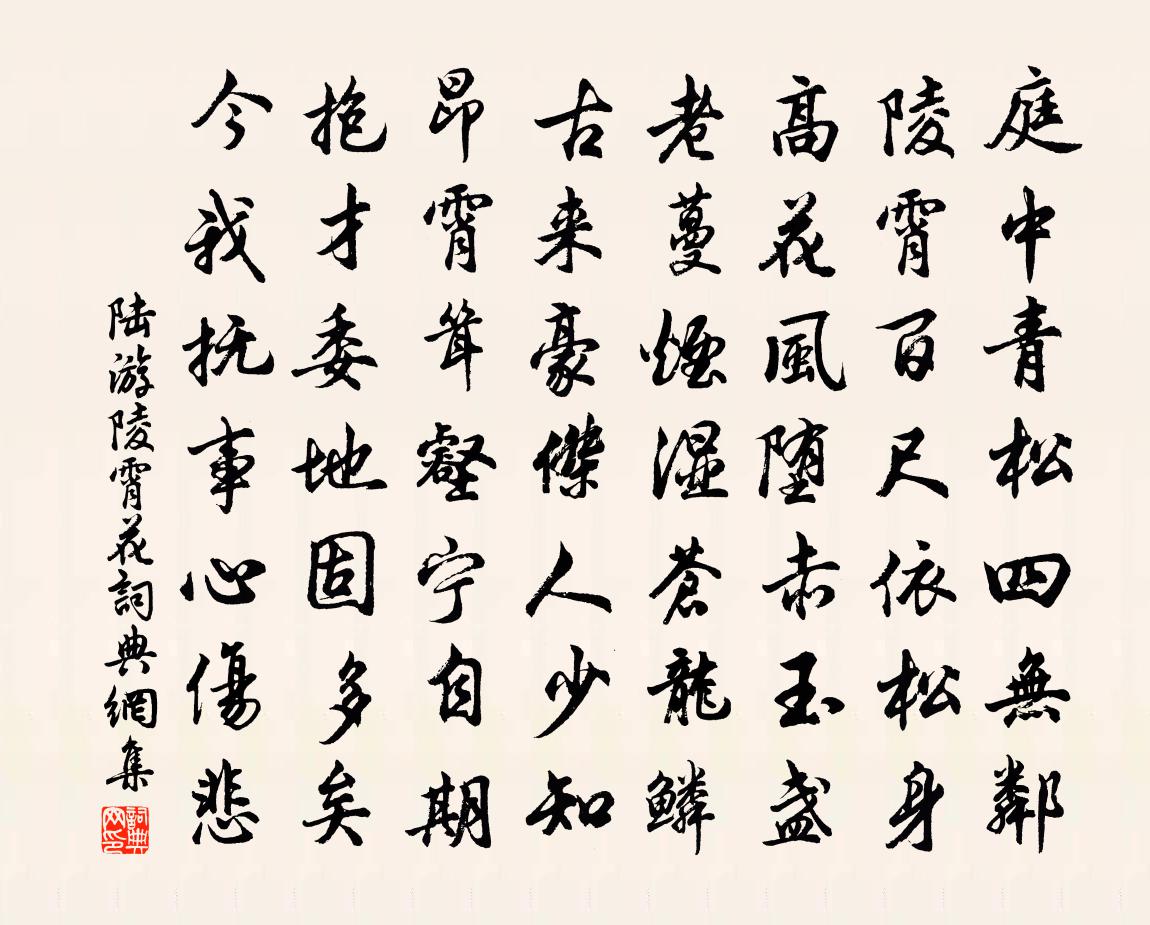 庭中青松四無鄰
陵霄百尺依松身
高花風堕赤玉盏
老蔓煙濕蒼龍鱗
古来豪傑人少知
昂霄耸壑宁自期
抱才委地固多矣
今我抚事心傷悲
陆游陵霄花詞典網集
詞典网印